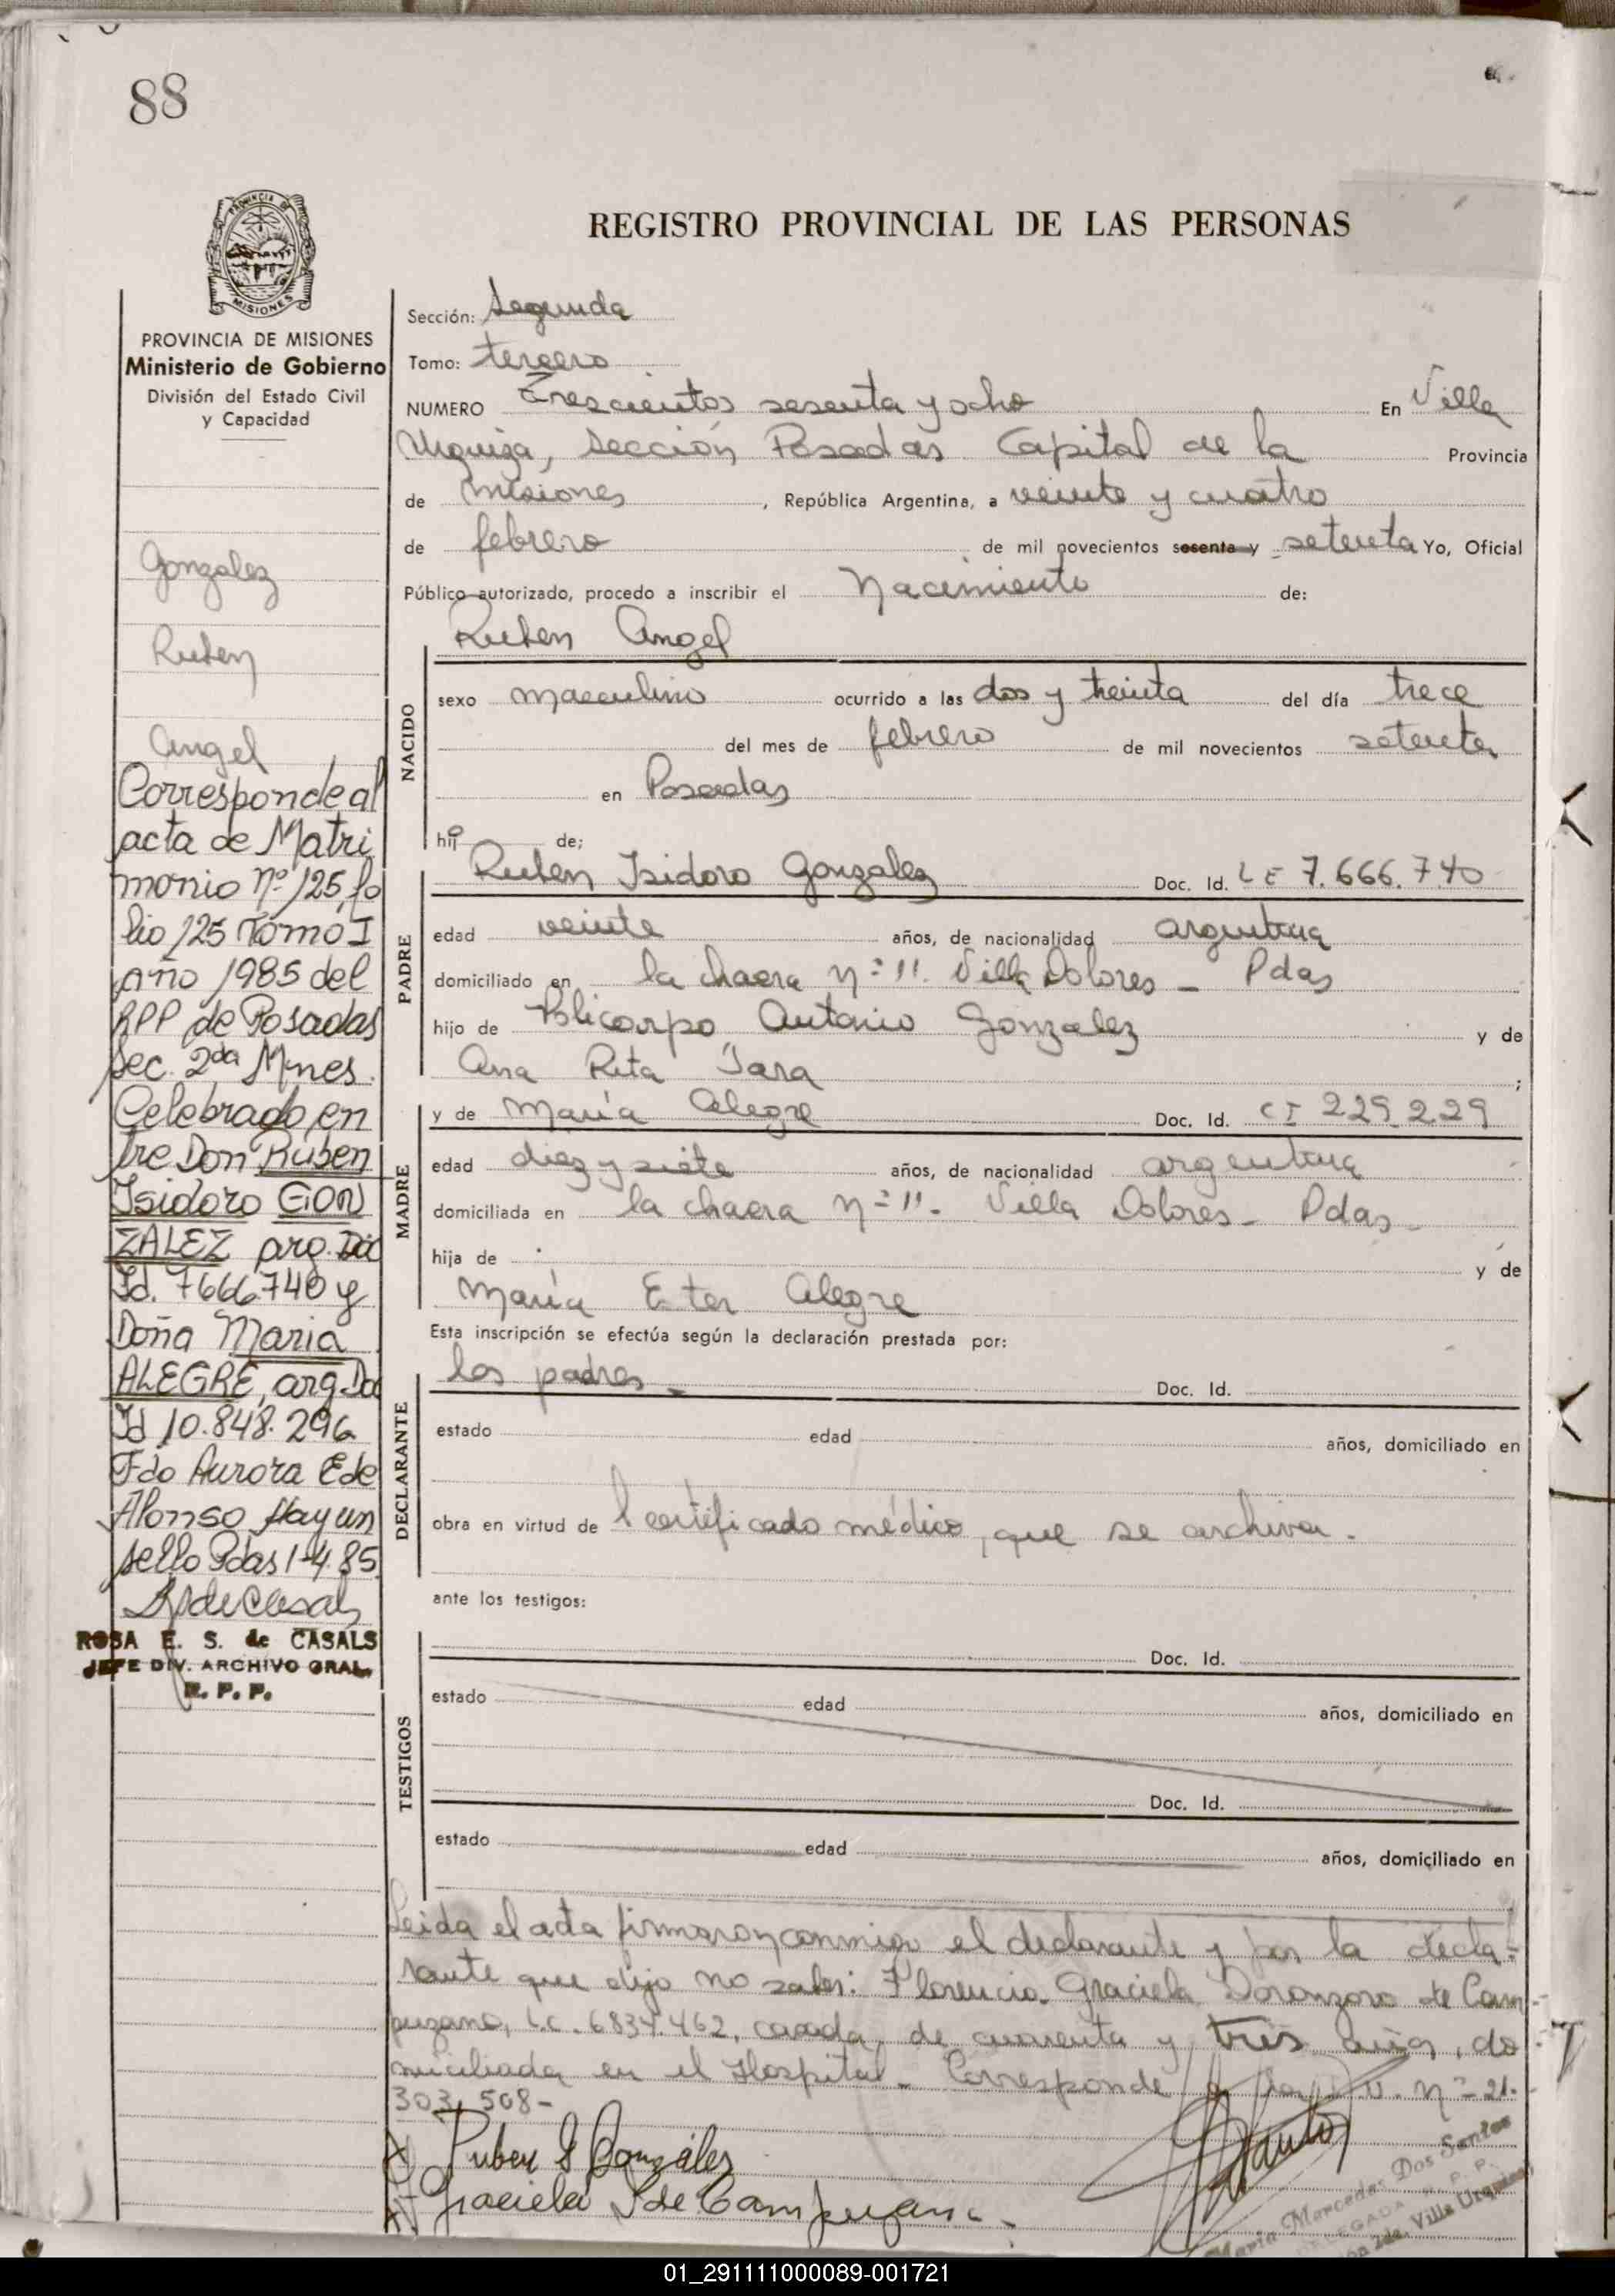 88
PROVINCIA DE
MISIONES
PROVINCIA DE MISIONES
Ministerio de Gobierno
División del Estado Civil
y Capacidad
Gonzalez
Ruben
Angel
Corresponde al
acta de Matri
monio nº 125 fo
lio 125 Tomo I
año 1985 del
RPP de Posadas
Sec. 2da Mnes.
Celebrado en
tre Don Ruben
Isidoro GON
ZALEZ arg. Doc
Id. 7666740 y
Doña Maria
ALEGRE, arg. Doc
Id 10.848.296
Fdo Aurora E de
Alonso Hay un
sello Pdas 1-4-85
ROSA E. S. de CASALS
JEFE DIV. ARCHIVO GRAL.
R. P. P.
REGISTRO PROVINCIAL DE LAS PERSONAS
Sección: Segunda
Tomo: tercero
NUMERO Trescientos sesenta y ocho En Villa
Urquiza, sección Posadas Capital de la Provincia
de Misiones, República Argentina, a veinte y cuatro
de febrero de mil novecientos sesenta y setenta Yo, Oficial
Público autorizado, procedo a inscribir el Nacimiento de:
Ruben Angel
NACIDO
sexo masculino ocurrido a las dos y treinta del día trece
del mes de febrero de mil novecientos setenta
en Posadas
hijo de;
Ruben Isidoro Gonzalez Doc. Id. LE 7.666.740
PADRE
edad veinte años, de nacionalidad argentina
domiciliado en la chacra nº 11. Villa Dolores - Pdas
hijo de Policarpo Antonio Gonzalez y de
Ana Rita Jara ;
y de María Alegre Doc. Id. CI 229.229
MADRE
edad diez y siete años, de nacionalidad argentina
domiciliada en la chacra nº 11. Villa Dolores - Pdas -
hija de y de
María Ester Alegre
Esta inscripción se efectúa según la declaración prestada por:
los padres - Doc. Id.
DECLARANTE
estado edad años, domiciliado en
obra en virtud de certificado médico, que se archiva.
ante los testigos:
Doc. Id.
TESTIGOS
estado edad años, domiciliado en
Doc. Id.
estado edad años, domiciliado en
Leida el acta firmaron conmigo el declarante y por la decla-
rante que dijo no saber: Florencia Graciela Doronzoro de Cam-
puzano, L.C. 6834.462, casada, de cuarenta y tres años, do-
miciliada en el Hospital - Corresponde nº 21.
303.508-
Ruben I Gonzalez
Graciela de Campuzano
Maria Mercedes Dos Santos
DELEGADA R. P. P.
2da. Villa Urquiza
01_291111000089-001721